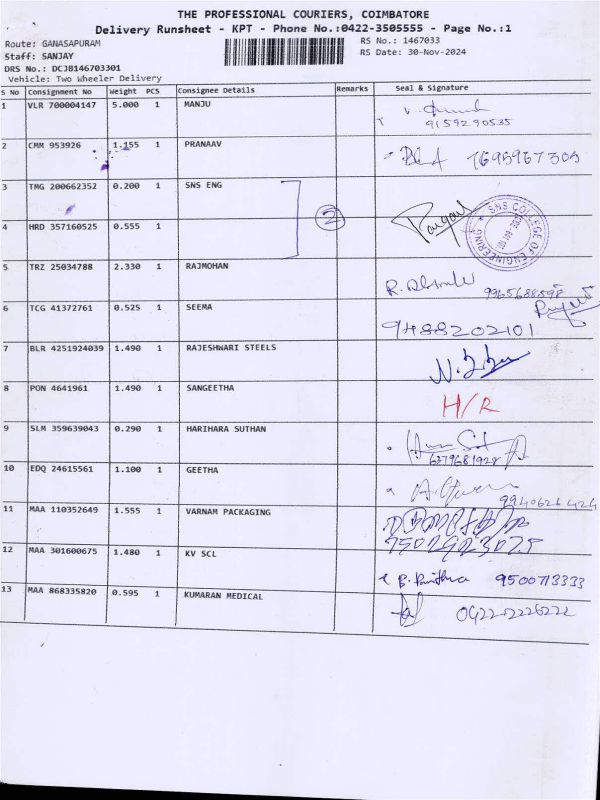 THE PROFESSIONAL COURIERS, COIMBATORE
Delivery Runsheet - KPT - Phone No.:0422-3505555 - Page No.:1
Route: GANASAPURAM RS No.: 1467033
Staff: SANJAY RS Date: 30-Nov-2024
DRS No.: DCJB146703301
Vehicle: Two Wheeler Delivery
S No Consignment No Weight PCS Consignee Details Remarks Seal & Signature
1 VLR 700004147 5.000 1 MANJU
9159290535
2 CMM 953926 1.155 1 PRANAAV 7695967305
3 TMG 200662352 0.200 1 SNS ENG
2
SNS COLLEGE OF ENGINEERING
4 HRD 357160525 0.555 1
5 TRZ 25034788 2.330 1 RAJMOHAN
9965688598
6 TCG 41372761 0.525 1 SEEMA
9488202101
7 BLR 4251924039 1.490 1 RAJESHWARI STEELS
8 PON 4641961 1.490 1 SANGEETHA H/R
9 SLM 359639043 0.290 1 HARIHARA SUTHAN
6379681928
10 EDQ 24615561 1.100 1 GEETHA
9940621424
11 MAA 110352649 1.555 1 VARNAM PACKAGING
7502923025
12 MAA 301600675 1.480 1 KV SCL
9500713333
13 MAA 868335820 0.595 1 KUMARAN MEDICAL
0422-2226222